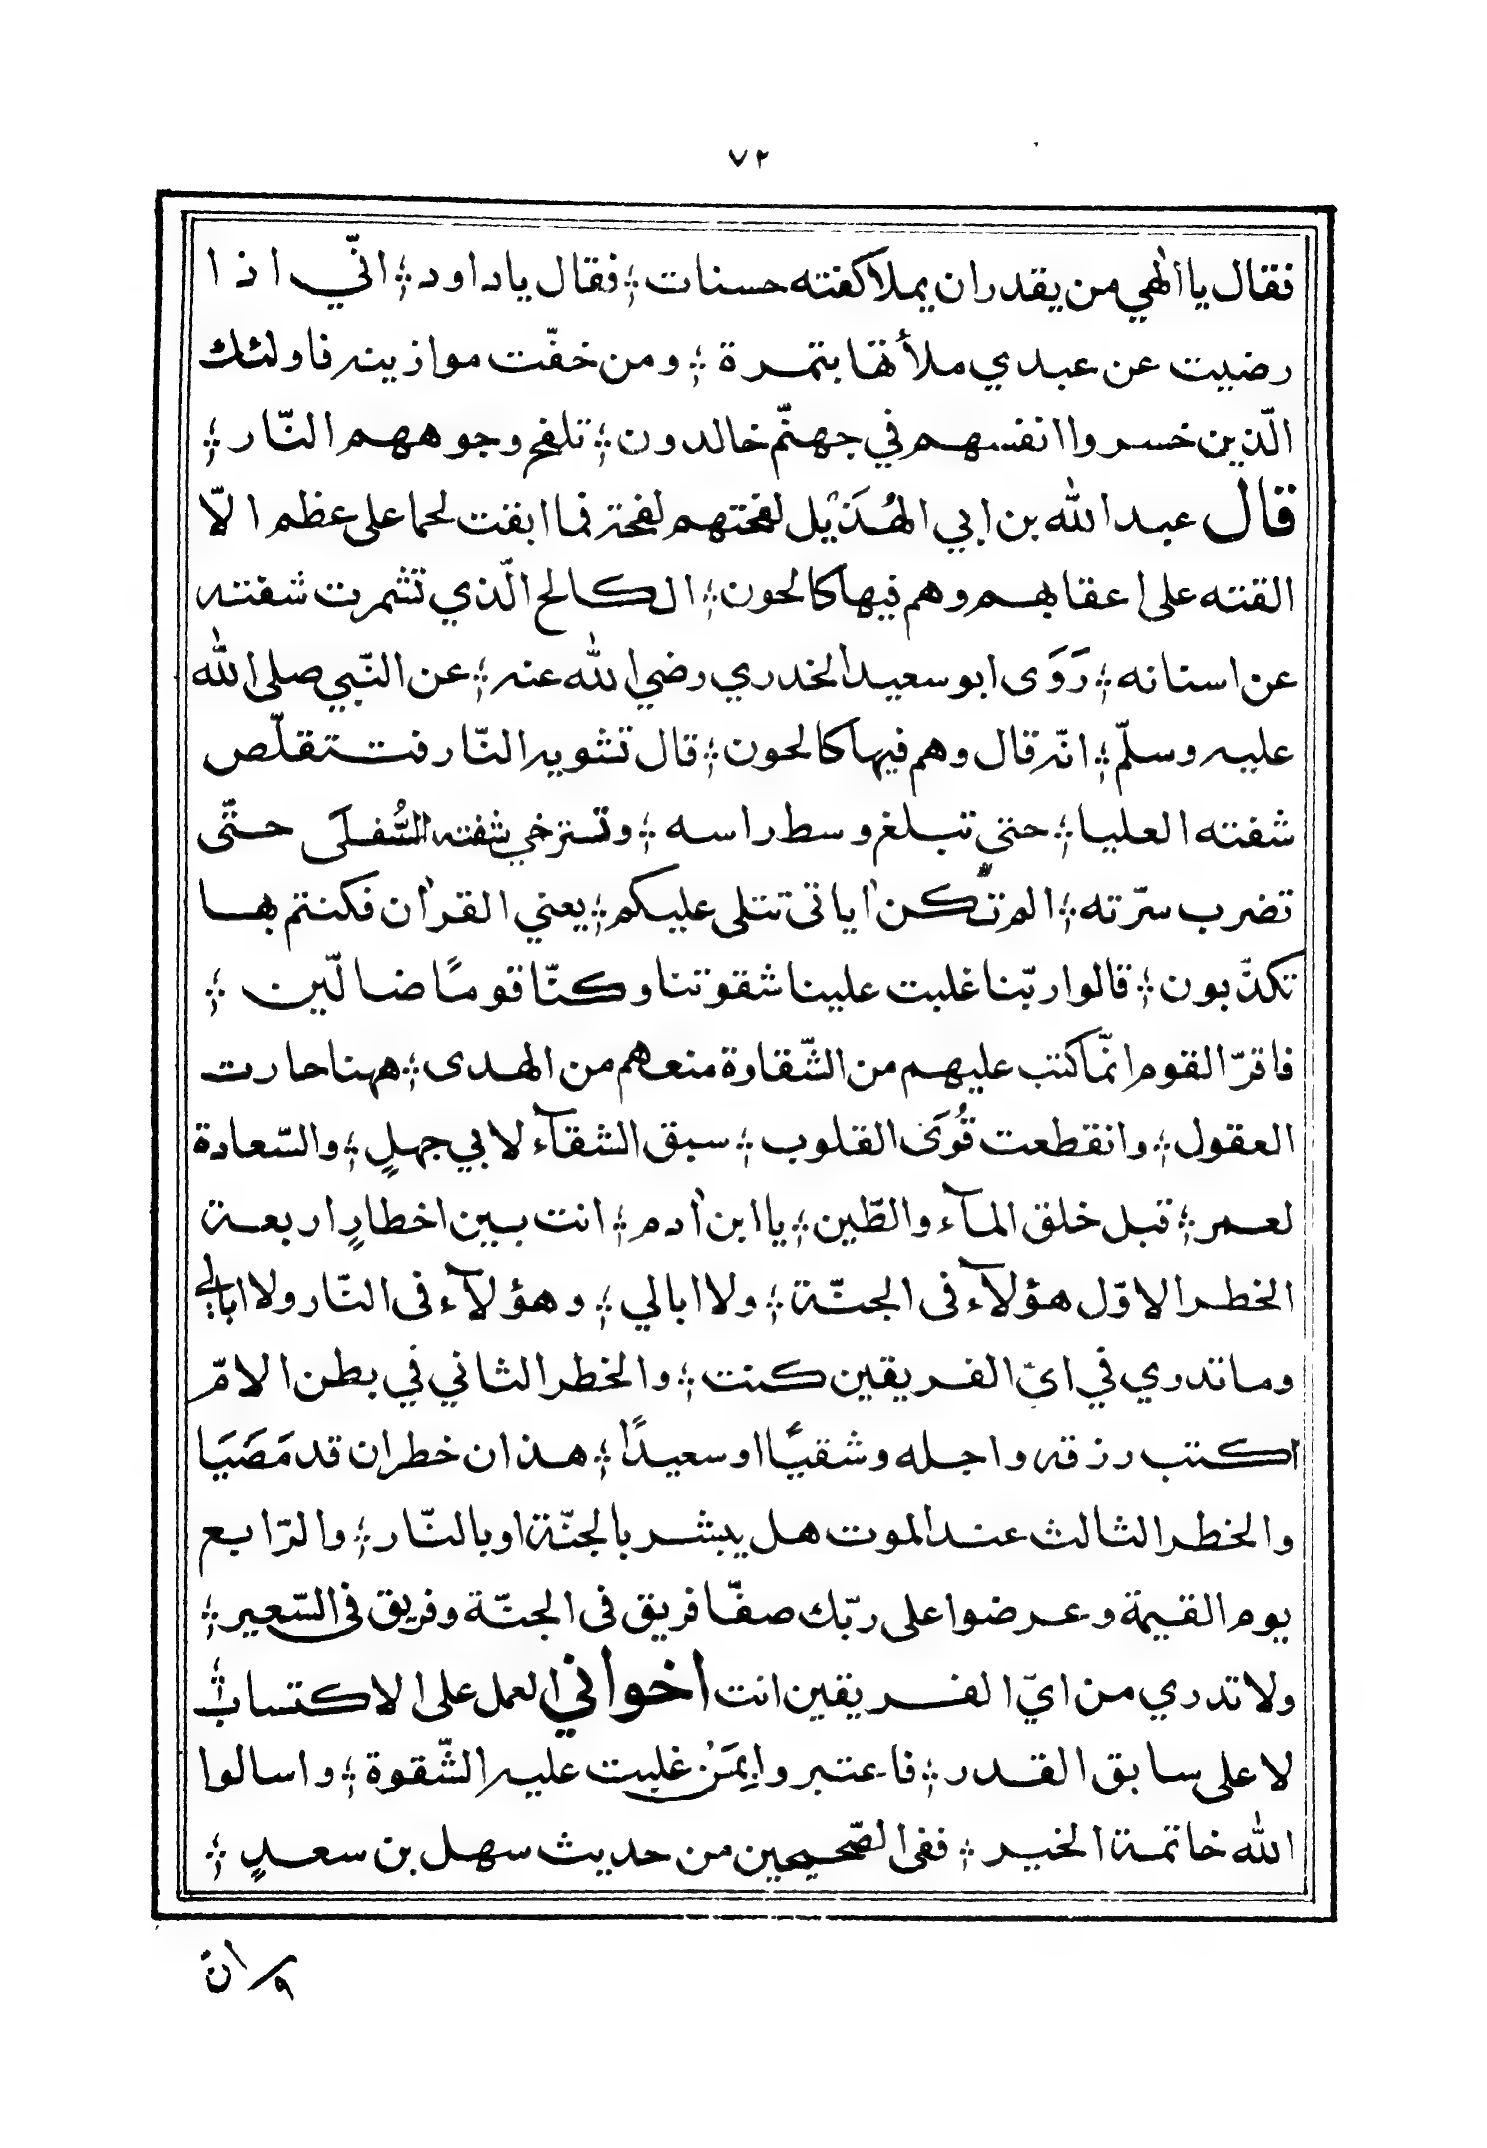 ٧٢
فقال يا الٰهي من يقدر ان يملا كفته حسنات ؛ فقال ياداود ؛ انّي اذا
رضيت عن عبدي ملأتها بتمرة ؛ ومن خفّت موازينه فاولئك
الّذين خسروا انفسهم في جهنّم خالدون ؛ تلفح وجوههم النّار ؛
قال عبد الله بن ابي الهُذَيْل لفحتهم لفحة فما ابقت لحما على عظم الّا
القته على اعقابهم وهم فيها كالحون ؛ الكالح الّذي تشمرت شفته
عن اسنانه ؛ رَوَى ابو سعيد الخدري رضي الله عنه ؛ عن النّبي صلى الله
عليه وسلّم ؛ انّه قال وهم فيها كالحون ؛ قال تشويه النّار فتتقلّص
شفته العليا ؛ حتى تبلغ وسط راسه ؛ وتسترخي شفته السُّفلَى حتّى
تضرب سرّته ؛ الم تكن اٰياتى تتلى عليكم ؛ يعني القراٰن فكنتم بها
تكذّبون ؛ قالوا ربّنا غلبت علينا شقوتنا وكنّا قومًا ضالّين ؛
فاقرّ القوم انّما كتب عليهم من الشّقاوة منعهم من الهدى ؛ ههنا حارت
العقول ؛ وانقطعت قُوَى القلوب ؛ سبق الشقآء لابي جهلٍ ؛ والسّعادة
لعمر ؛ قبل خلق المآء والطّين ؛ يا ابن اٰدم ؛ انت بين اخطارٍ اربعة
الخطر الاوّل هؤلآء فى الجنّة ؛ ولا ابالي ؛ وهؤلآء فى النّار ولا ابالي
وما تدري في ايّ الفريقين كنت ؛ والخطر الثاني في بطن الامّ
اكتب رزقه واجله وشقيًّا او سعيدًا ؛ هذان خطران قد مَضَيَا
والخطر الثالث عند الموت هل يبشر بالجنّة او بالنّار ؛ والرّابع
يوم القيمة وعرضوا على ربّك صفّا فريق فى الجنّة وفريق فى السّعير ؛
ولا تدري من ايّ الفريقين انت اخواني العمل على الاكتساب ؛
لا على سابق القدر ؛ فاعتبروا بِمَنْ غلبت عليه الشّقوة ؛ واسالوا
الله خاتمة الخير ؛ ففى الصّحيحين من حديث سهل بن سعدٍ ؛